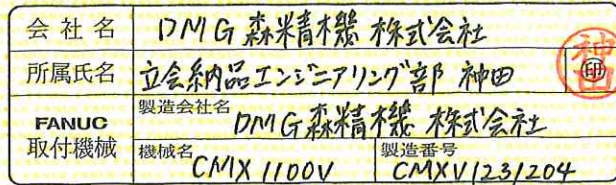 会社名 DMG森精機 株式会社
所属氏名 立会納品エンジニアリング部 神田 印
神田
FANUC 取付機械
製造会社名 DMG森精機 株式会社
機械名 CMX 1100V
製造番号 CMXV1231204